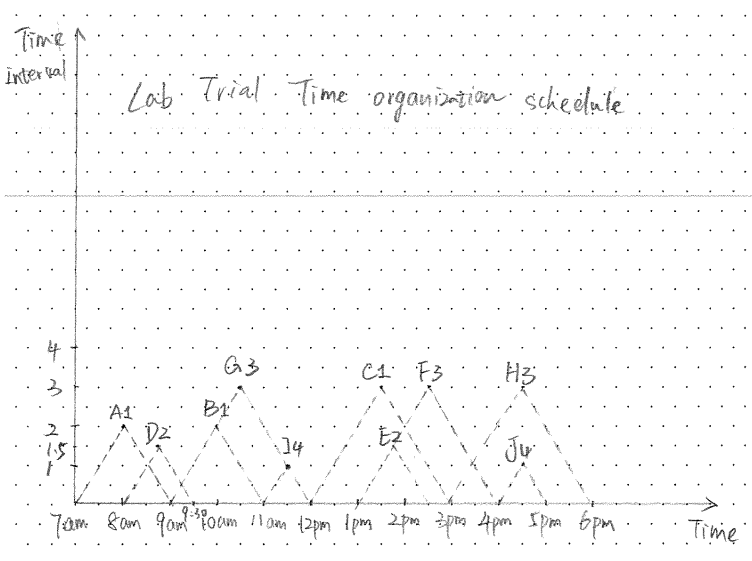 Time
interval
Lab Trial Time organization schedule
4
3
2
1.5
1
G3
C1
F3
H3
A1
D2
B1
E2
I4
J4
7am 8am 9am 9:30 10am 11am 12pm 1pm 2pm 3pm 4pm 5pm 6pm
Time